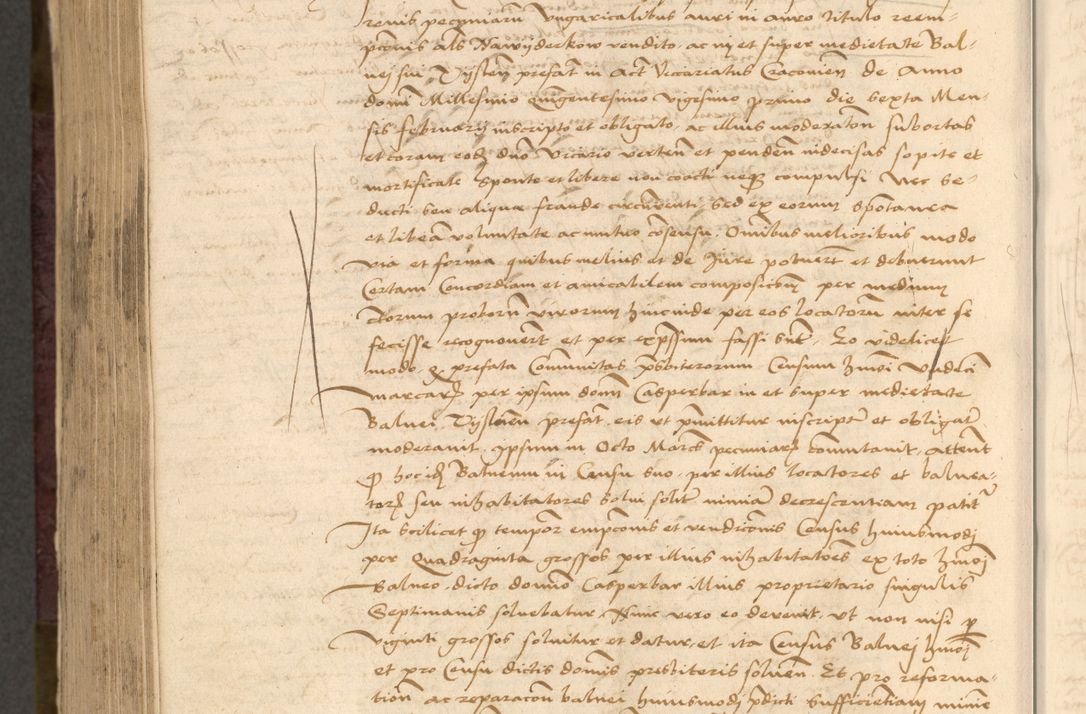 renis pecuniarum Ungaricalibus auri in auro titulo reem-
pconis als Nawyderkow vendito, ac in et super medietate Bal-
nej sui Tysken prefat in Act Vicariatus Cracovien de Anno
domi Millesimo Quigentesimo vigesimo primo die sexta Men-
sis februarij inscripto et obligato, ac illius moderaton subortas
et coram eod dno Vicario verten et penden indecisas sopite et
mortificate Sponte et libere non coacti neq compulsi Nec se-
ducti seu aliqua fraude circumventi, Sed ex eorum spontanea
et libera voluntate ac mutuo consensu. Omibus melioribus modo
via et forma quibus melius et de Jure potuert et debuerunt
Certam Concordiam et amicabilem composicom per medium
Ctorum proborum virorum hincinde per eos locatorum inter se
fecisse recognovert et per expssum fassi sunt. Eo videlicet
modo, q prefata Comunitas psbiterorum Censum hmoi Undeci
marcar per ipsum domi Casperbar in et super medietate
Balnei Tysken prefat, eis ut pmittitur inscript et obligat
moderavit, ypsum in Octo Marcs pecuniar comutavit, attent
q hoc id Balneum in Censu suo, per illius locatores et balnea-
tor seu inhabitatores solvi solit nimia decrescentiam patit
Ita scilicet q tempor empconis et vendiconis Census huiusmodi
per Quadraginta grossos per illius inhabitatoes ex toto hmoi
Balneo dicto domio Casperbar illius proprietario singulis
Septimanis solvebatur, Nunc vero eo devenit, ut non nisi p
viginti grossos solvitur et datur, et ita Census Balnej hmoi
et pro Censu dictis domis presbiteris solven. Et pro reforma-
tion ac reparacon balnei huiusmodi pdicti sufficientiam mime